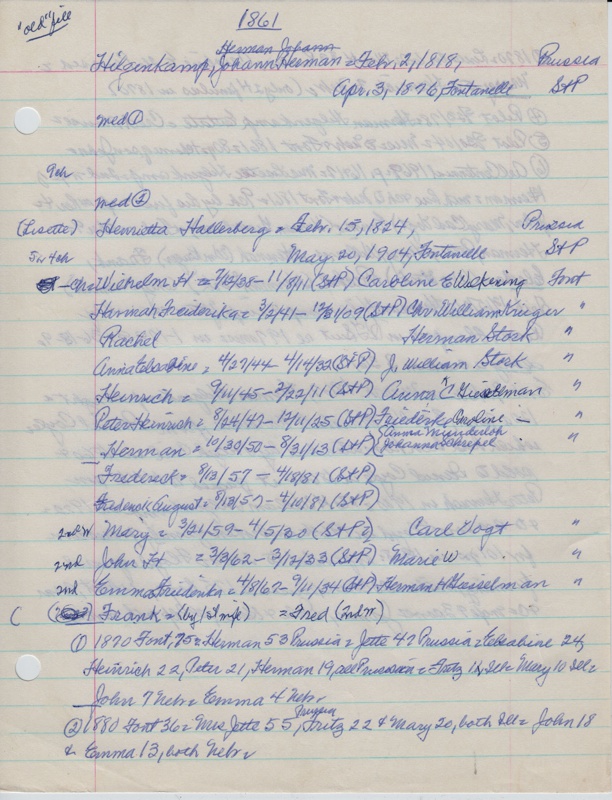 "old" file
1861
Herman Johann
Hilgenkamp, Johann Herman = Febr. 2, 1818, Prussia
Apr. 3, 1876, Fontanelle StP
med ①
9ch
med ②
(Lisette) Henrietta Hallerberg = Febr. 15, 1824, Prussia
5 w 4ch May 20, 1904, Fontanelle StP
Wilhelm H = 7/12/38 - 11/8/11 (StP) Caroline E Wekering Font
Hannah Freiderika = 3/2/41 - 12/31/09 (StP) Chr. William Krieger "
Rachel Herman Stork "
Anna Elsabine = 4/27/44 - 4/14/32 (StP) J. William Stork "
Heinrich = 9/11/45 - 2/22/11 (StP) Anna C Hieselman "
Peter Heinrich = 8/24/47 - 12/11/25 (StP) Friederke Caroline -
Anna Munderloh
- Herman = 10/30/50 - 8/31/13 (StP) Johanna Chrepel "
Frederick = 8/13/57 - 4/8/81 (StP)
Frederick August = 8/13/57 - 4/10/81 (StP)
2nd W Mary = 3/21/59 - 4/5/30 (StP) Carl Vogt "
2nd John H = 3/3/62 - 3/12/33 (StP) Marie W "
2nd Emma Freidericka = 4/8/67 - 9/11/34 (StP) Herman H Heiselman "
( Frank = (by 1st wife) = Fred (2nd W)
① 1870 Font, 75 = Herman 53 Prussia = Jette 47 Prussia = Elsabine 24,
Heinrich 22, Peter 21, Herman 19, all Prussian = Fritz 12, Ill = Mary 10 Ill =
John 7 Nebr = Emma 4 Nebr.
② 1880 Font 36 = Mrs Jette 55, Prussia Fritz 22 & Mary 20, both Ill = John 18
& Emma 13, both Nebr.